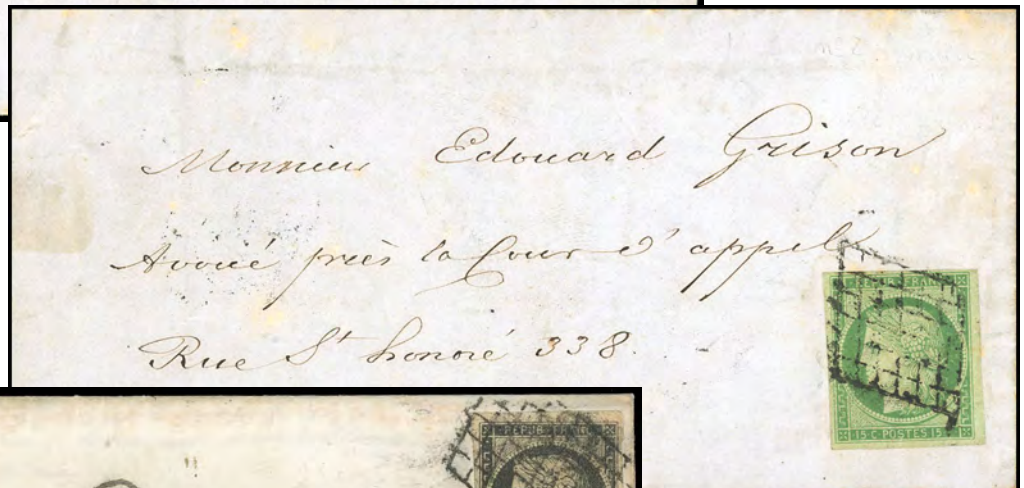 Monsieur Edouard Grison
Avoué près la Cour d'appel
Rue St honoré 338.
REPUB FRANC
15 C POSTES 15 C
REPUB FRANC